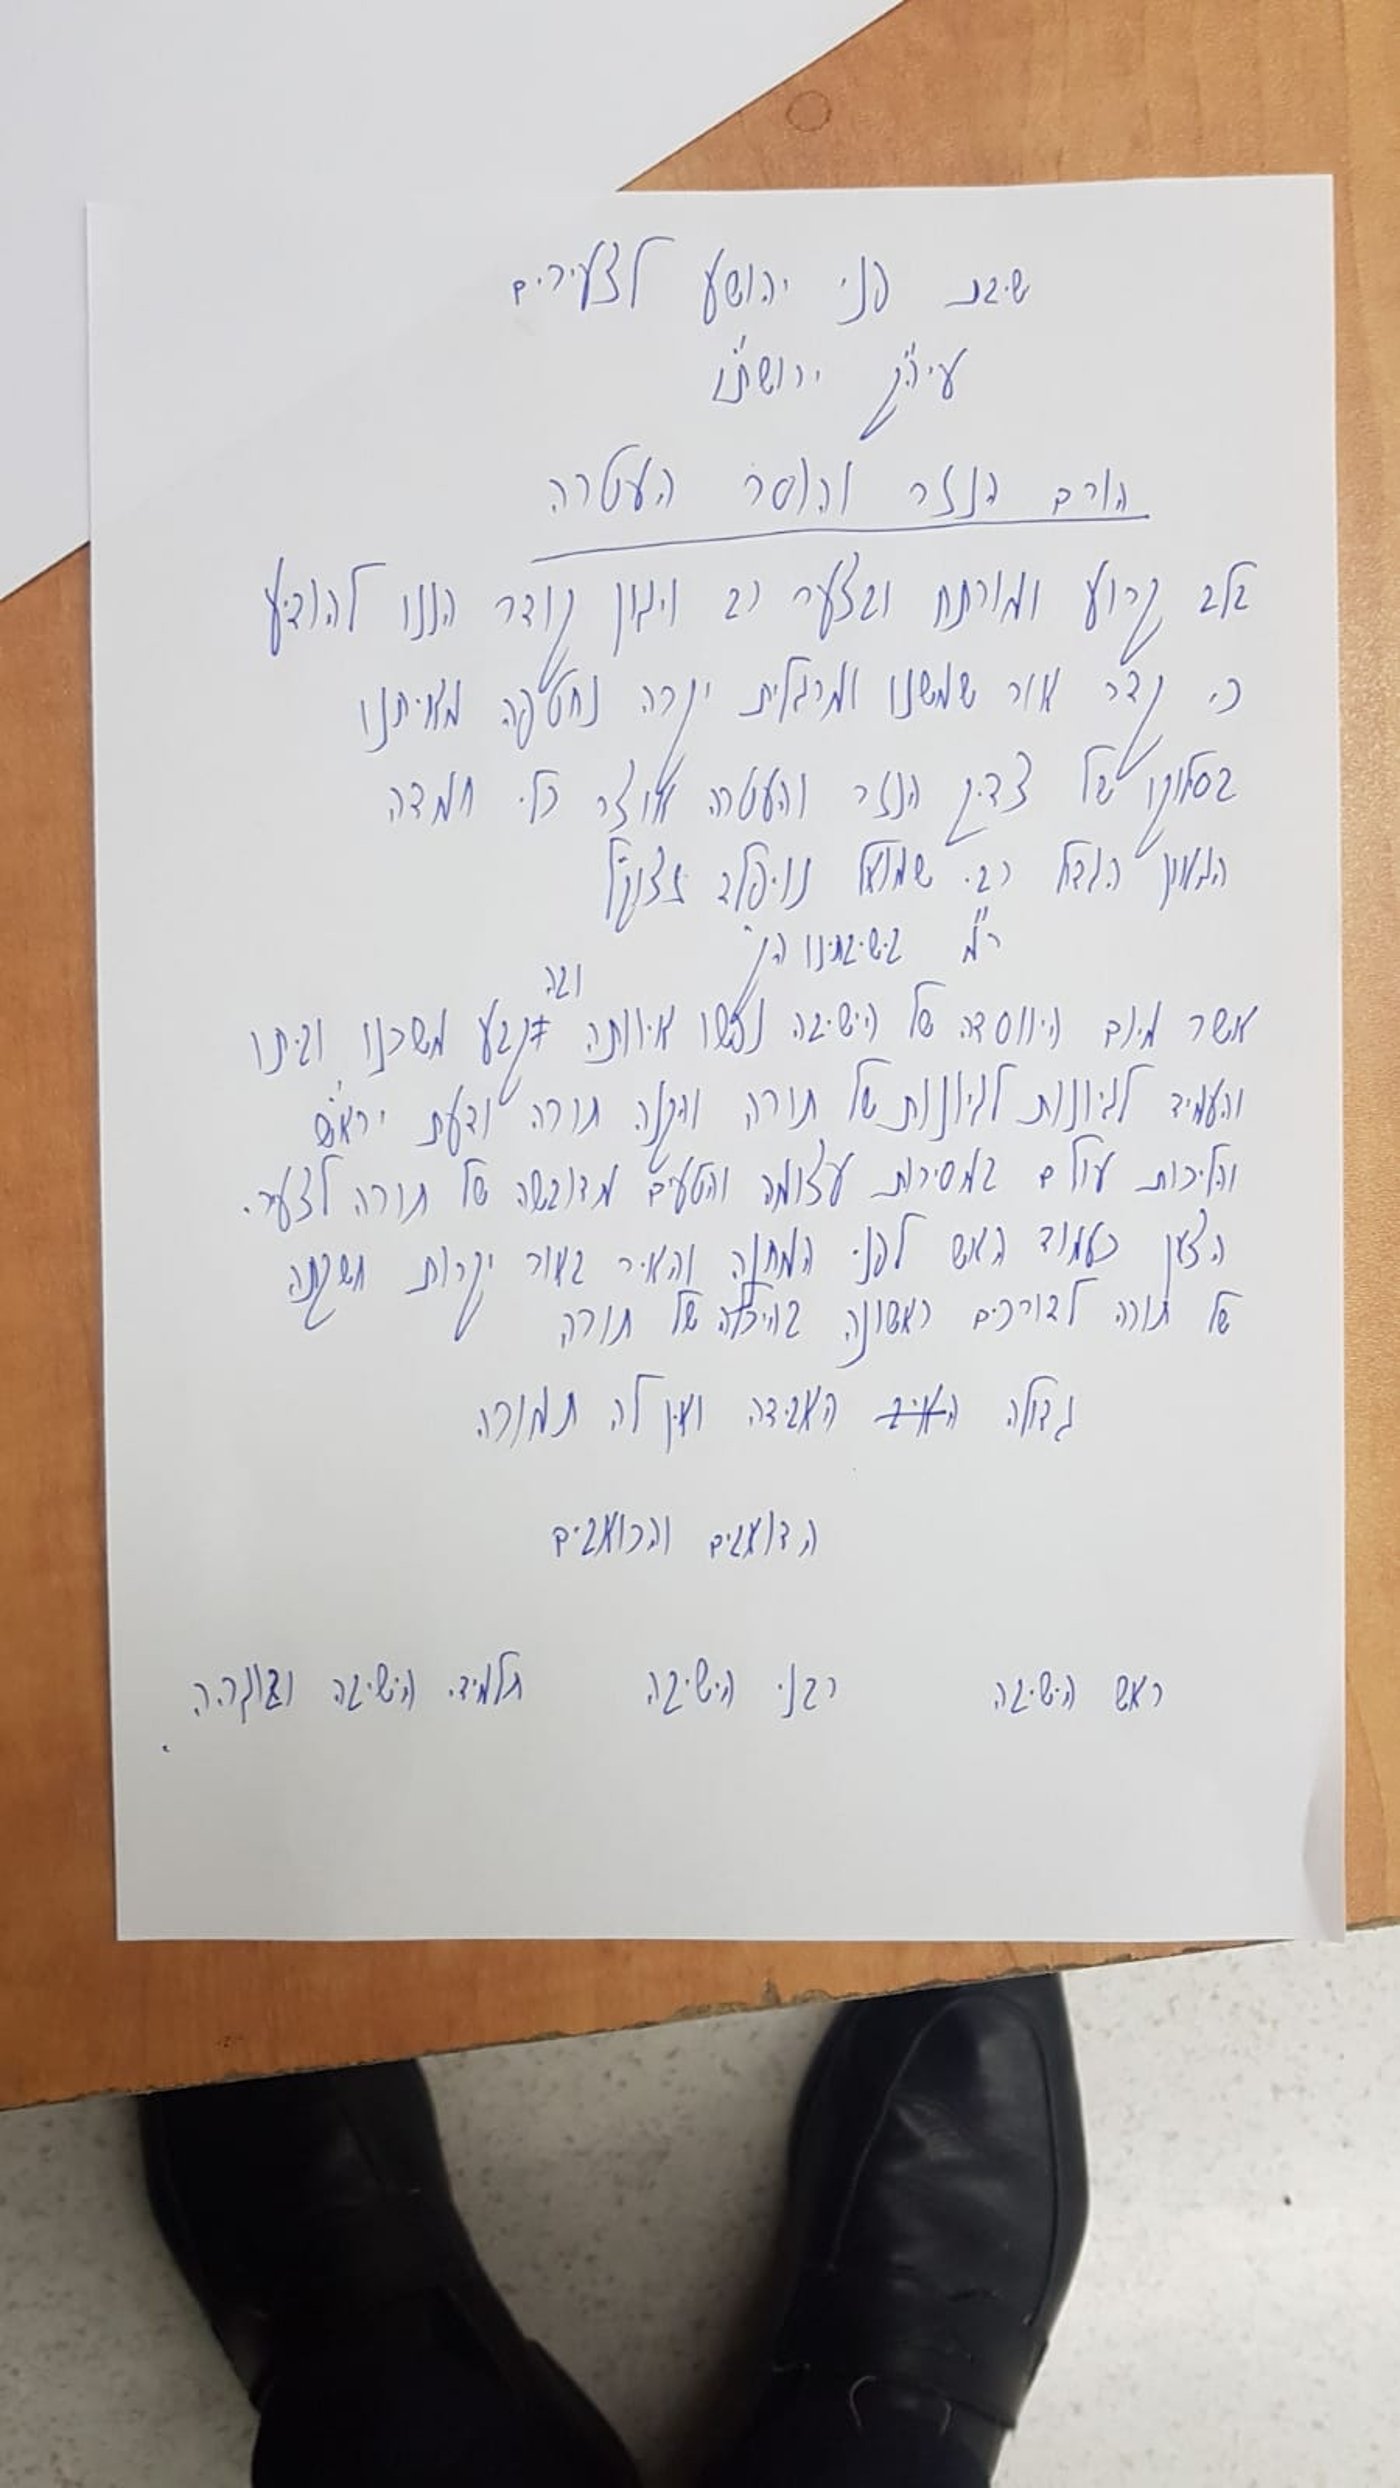 ישיבת פני יהושע לצעירים
עיה"ק ירושת"ו
הורם הנזר והוסר העטרה
בלב קרוע ומורתח ובצער רב ויגון קודר הננו להודיע
כי קדר אור שמשנו ומרגלית יקרה נחטפה מאיתנו
בסלוקו של צדיק הנזר והעטרה אוצר כלי חמדה
הגאון הגדול רבי שמואל נויפלד זצוק"ל
ר"מ בישיבתנו הק'
אשר מיום היווסדה של הישיבה נפשו איוותה ובה קבע משכנו וביתו
והעמיד לגיונות לגיונות של תורה והקנה תורה ודעת ויר"ש
והליכות עולם במסירות עצומה והטעים מדובשה של תורה לצעירי
הצאן כעמוד האש לפני המחנה והאיר באור יקרות חשקתה
של תורה לדורכים ראשונה בהיכלה של תורה
גדולה האבידה ואין לה תמורה
הדואגים והכואבים
ראש הישיבה רבני הישיבה תלמידי הישיבה ובוגריה